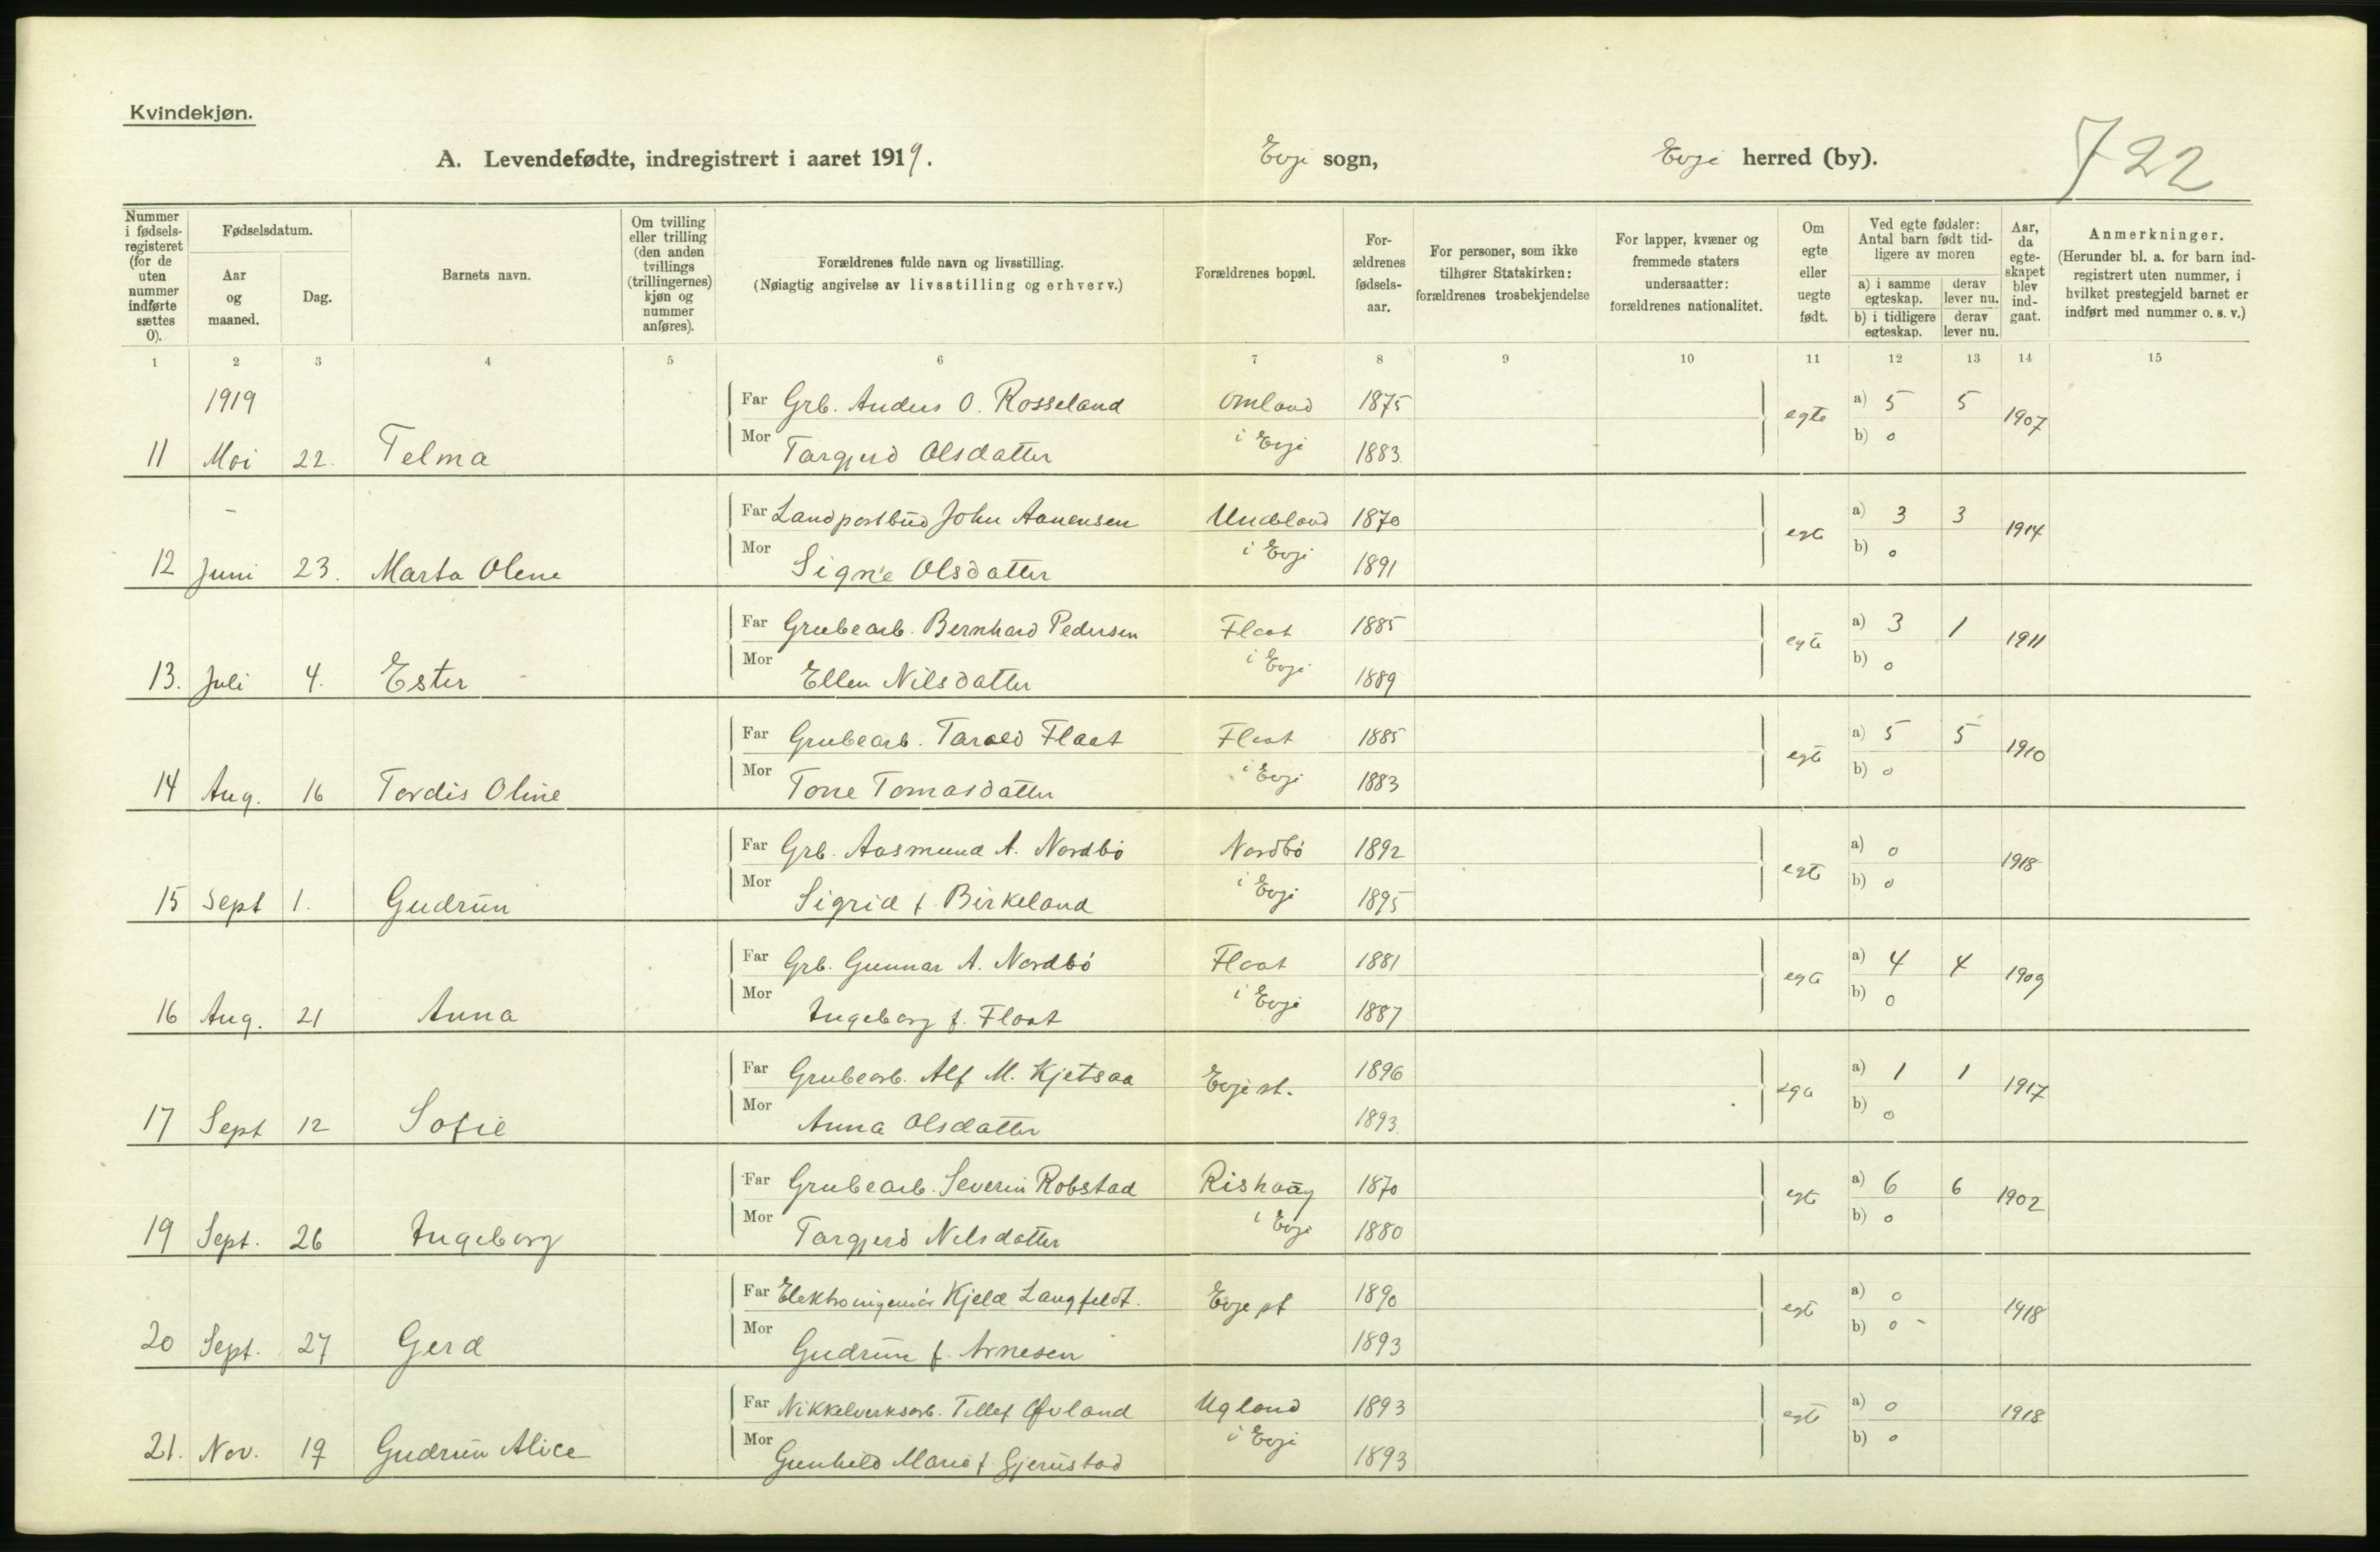 Kvindekjøn.
A. Levendefødte, indregistrert i aaret 1919. Evje sogn, Evje herred (by). 722
Nummer i fødsels-registeret (for de uten nummer indførte sættes 0).
Fødselsdatum.
Aar og maaned.
Dag.
Barnets navn.
Om tvilling eller trilling (den anden tvillings (trillingernes) kjøn og nummer anføres).
Forældrenes fulde navn og livsstilling.
(Nøiagtig angivelse av livsstilling og erhverv.)
Forældrenes bopæl.
For-ældrenes fødsels-aar.
For personer, som ikke tilhører Statskirken: forældrenes trosbekjendelse
For lapper, kvæner og fremmede staters undersaatter: forældrenes nationalitet.
Om egte eller uegte født.
Ved egte fødsler: Antal barn født tid-ligere av moren
a) i samme egteskap.
derav lever nu.
b) i tidligere egteskap.
derav lever nu.
Aar, da egte-skapet blev ind-gaat.
Anmerkninger.
(Herunder bl. a. for barn ind-registrert uten nummer, i hvilket prestegjeld barnet er indført med nummer o. s. v.)
1 2 3 4 5 6 7 8 9 10 11 12 13 14 15
1919 Far Grb. Anders O. Rosseland Omland 1875 egte a) 5 5 1907
11 Mai 22. Telma Mor Targjerd Olsdatter i Evje 1883. b) 0
- Far Landpostbud John Aanensen Uncland 1870 egte a) 3 3 1914
12 Juni 23. Marta Olene Mor Signe Olsdatter i Evje 1891 b) 0
Far Grubearb. Bernhard Pedersen Flaat 1885 egte a) 3 1 1911
13. Juli 4. Ester Mor Ellen Nilsdatter i Evje 1889 b) 0
Far Grubearb. Tarald Flaat Flaat 1885 egte a) 5 5 1910
14 Aug. 16 Tordis Oline Mor Tone Tomasdatter i Evje 1883 b) 0
Far Grb. Aasmund A. Nordbö Nordbö 1892 egte a) 0 1918
15 Sept 1. Gudrun Mor Sigrid f. Birkeland i Evje 1895 b) 0
Far Grb. Gunnar A. Nordbö Flaat 1881 egte a) 4 4 1909
16 Aug. 21 Anna Mor Ingeborg f. Flaat i Evje 1887 b) 0
Far Grubearb. Alf M. Kjetsaa Evje st. 1896 egte a) 1 1 1917
17 Sept 12 Sofie Mor Anna Olsdatter 1893. b) 0
Far Grubearb. Severin Robstad Rishaug 1870 egte a) 6 6 1902
19 Sept. 26 Ingeborg Mor Targjerd Nilsdatter i Evje 1880 b) 0
Far Elektroingeniör Kjeld Langfeldt. Evje st 1890 egte a) 0 1918
20 Sept. 27 Gerd Mor Gudrun f. Arnesen 1893 b) 0 -
Far Nikkelverksarb. Tellef Øvland Ugland 1893 egte a) 0 1918
21. Nov. 19 Gudrun Alice Mor Gunhild Marie f. Gjerustad i Evje 1893 b) 0